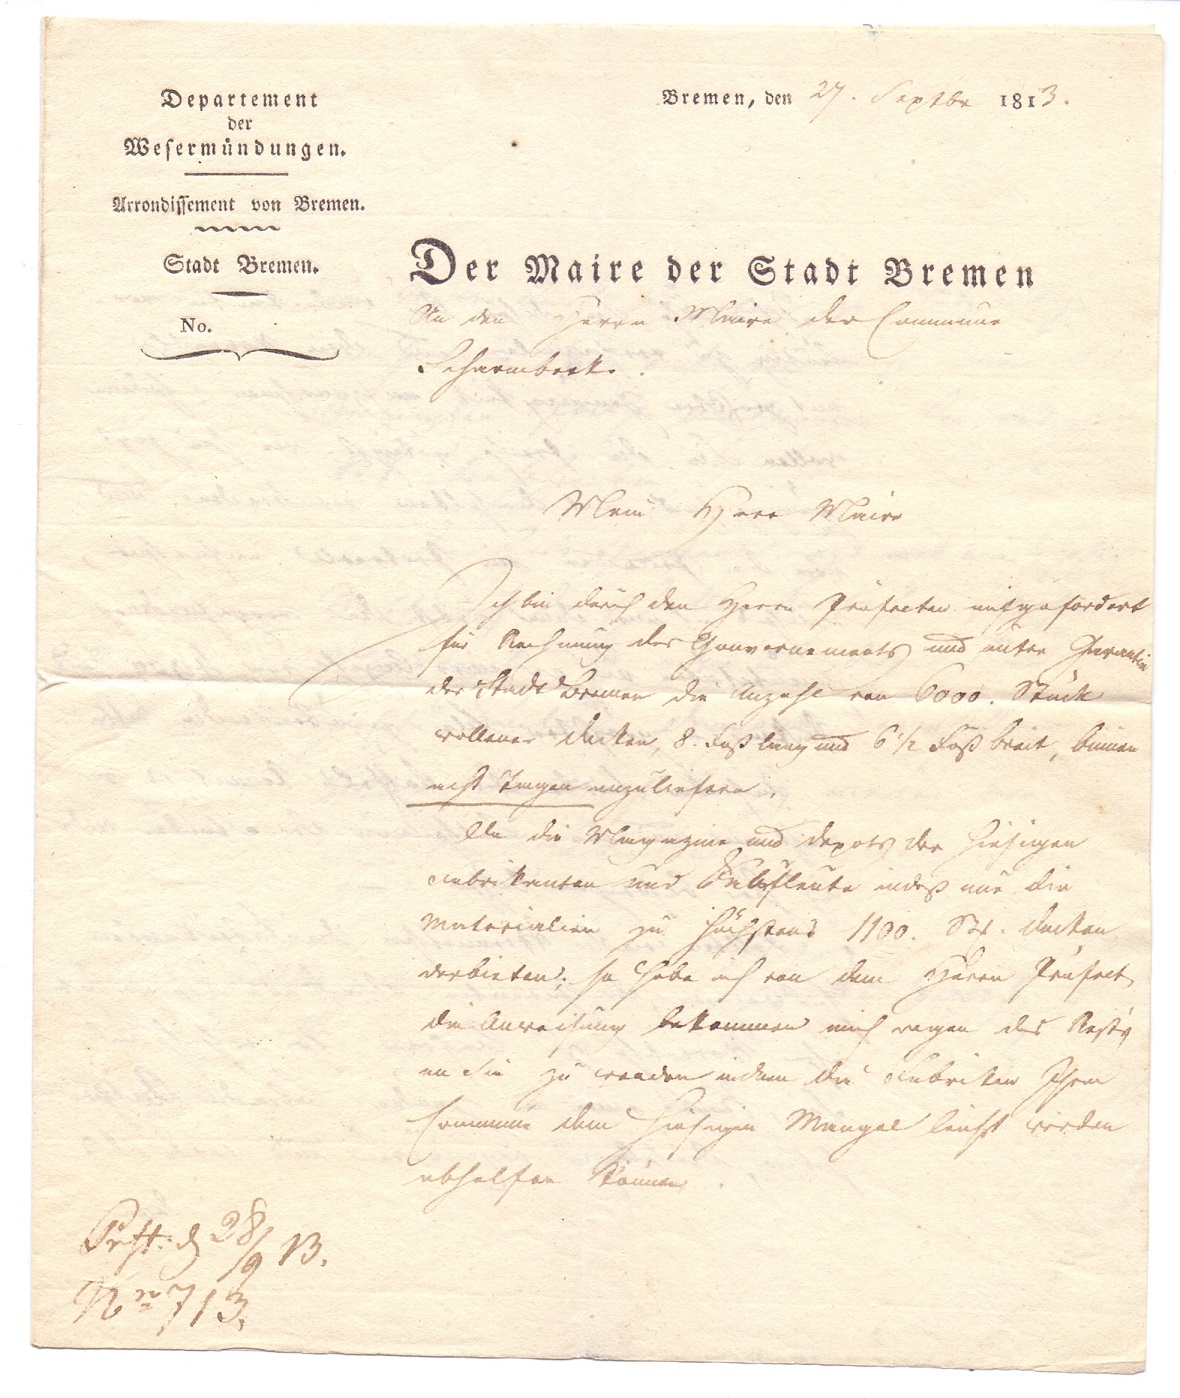 Departement
der
Weſermündungen.
Arrondiſſement von Bremen.
Stadt Bremen.
No.
Bremen, den 27. Septbr 1813.
Der Maire der Stadt Bremen
An den Herrn Maire der Commune
Scharmbeck.
Mein Herr Maire
Ich bin durch den Herrn Präfecten aufgefordert
für Rechnung des Gouvernements und unter Garantie
der Stadt Bremen die Anzahl von 6000. Stück
wollener Decken, 8. Fuß lang und 6 1/2 Fuß breit, binnen
acht Tagen anzuliefern.
Da die Magazine und Depots der hiesigen
Fabrikanten und Kaufleute indeß nur die
Materialien zu höchstens 1100. St. Decken
darbieten; so habe ich von dem Herrn Präfect
die Anweisung bekommen mich wegen des Rests
an Sie zu wenden indem die Fabriken Ihrer
Commune dem hiesigen Mangel leicht werden
abhelfen können.
Prst: d 28/9 13.
Nro 713.